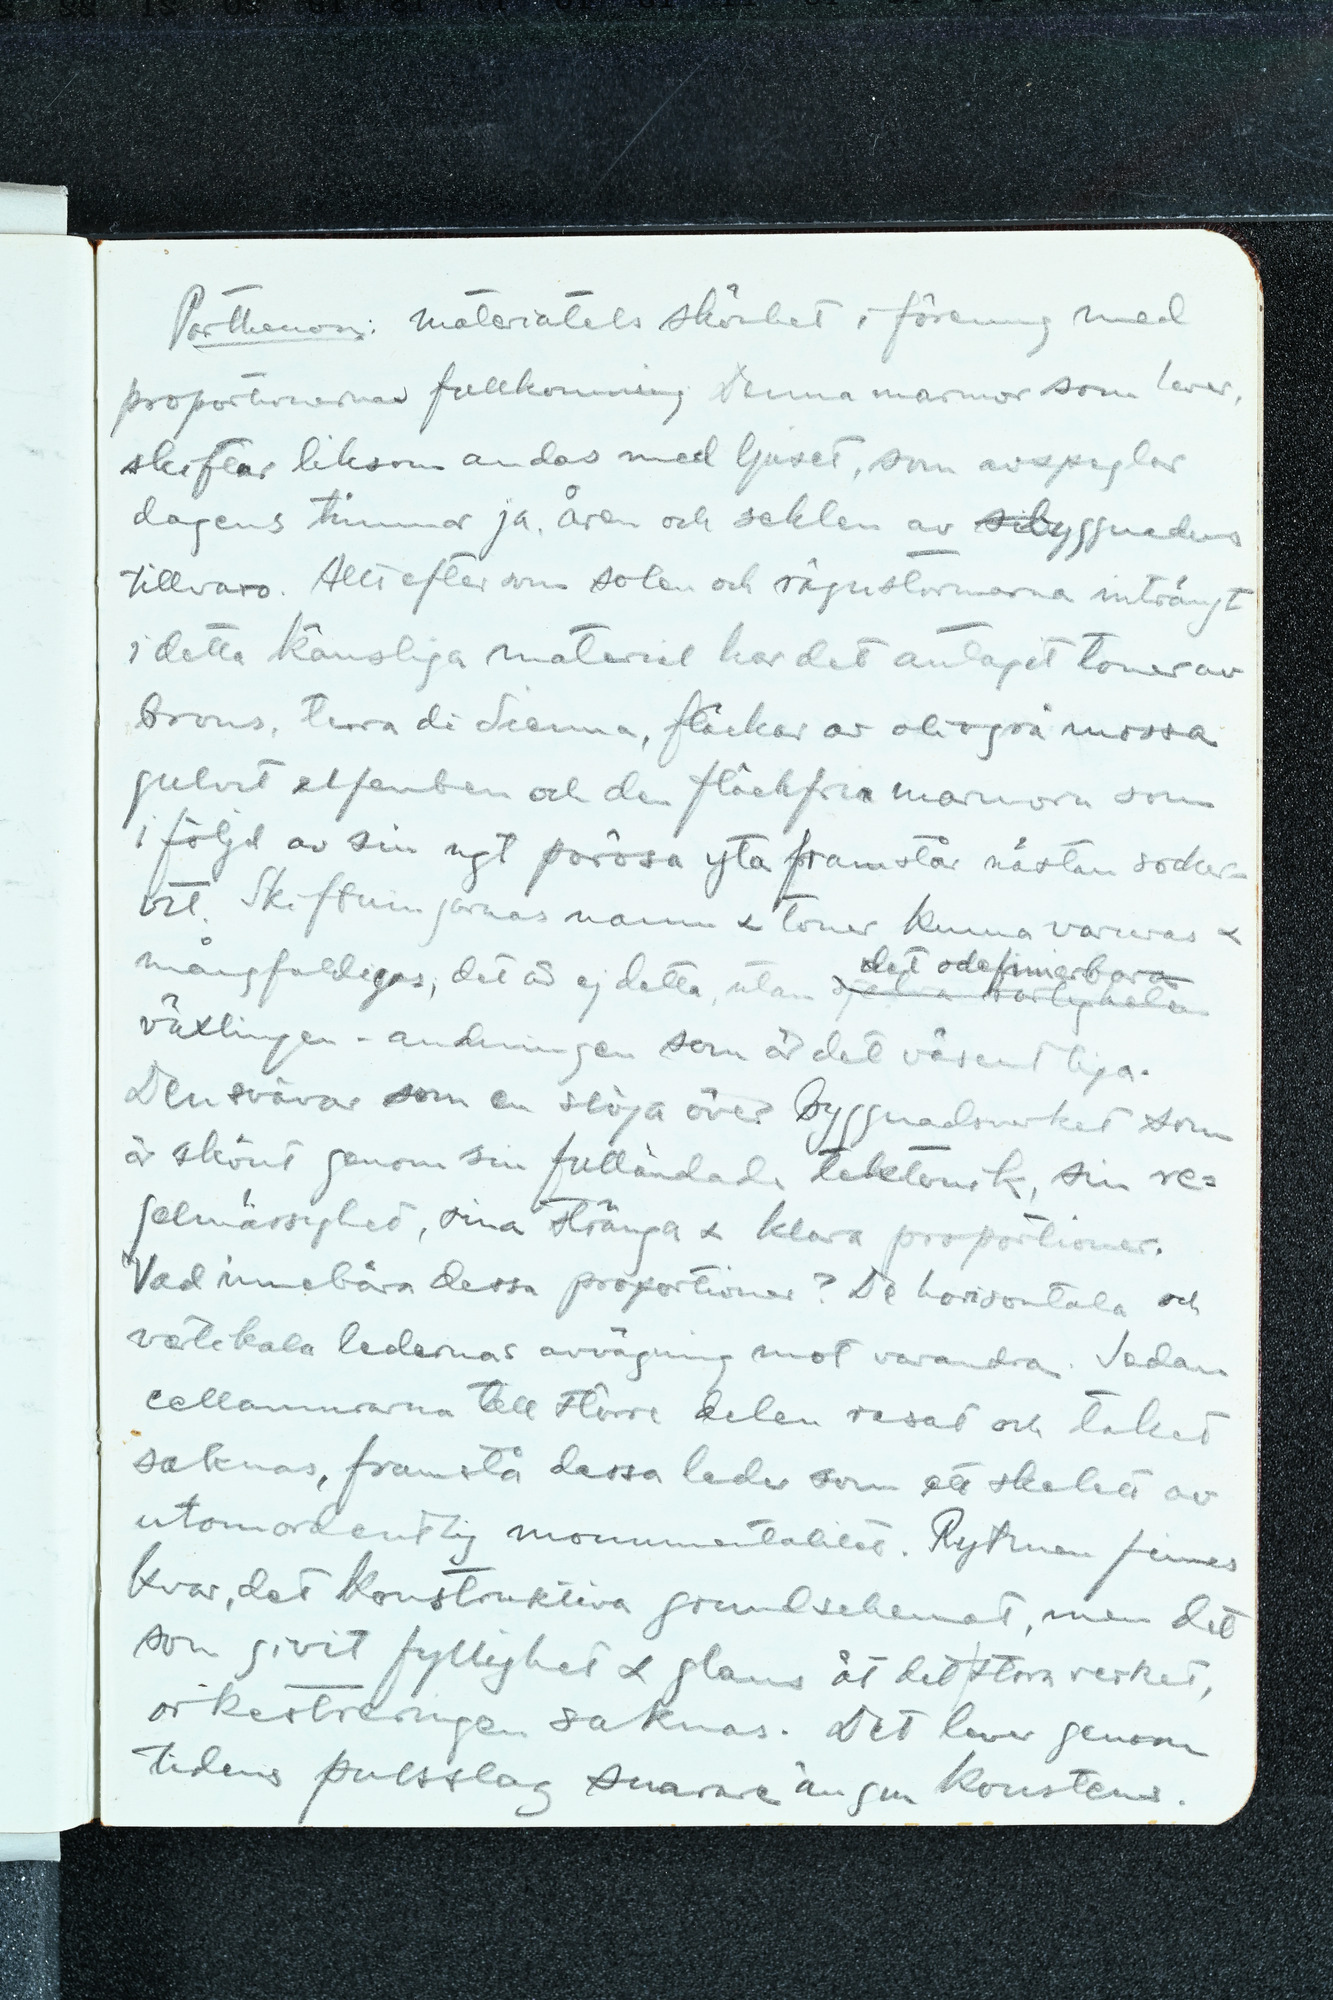 Parthenon: materialets skönhet i förening med
proportionernas fullkomning Denna marmor som lever,
skiftar liksom andas med ljuset, som avspeglar
dagens timmar ja, åren och seklen av byggnadens
tillvaro. Allt eftersom solen och rägnstormarna inträngt
i detta känsliga material har det antagit toner av
brons, terra di Sienna, fläckar av olivgrå mossa
gulvit elfenben och den fläckfria marmorn som
i följd av sin ngt porösa yta framstår nästan socker=
vit. Skiftningarnas namn & toner kunna varieras &
mångfaldigas, det är ej detta, utan det odefinierbara
växlingen - andningen som är det väsentliga.
Den svävar som en slöja över byggnadsverket som
är skönt genom sin fulländade tektonik, sin re=
gelmässighet, sina stränga & klara proportioner.
Vad innebära dessa proportioner? De horisontala och
vertikala ledernas avvägning mot varandra. Sedan
cellamurarna till större delen rasat och taket
saknas, framstå dessa leder som ett skelett av
utomordentlig monumentalitet. Rytmen finnes
kvar, det konstruktiva grundschemat, men det
som givit fyllighet & glans åt det stora verket,
orkestreringen saknas. Det lever genom
tidens pulsslag snarare än gm konstens.